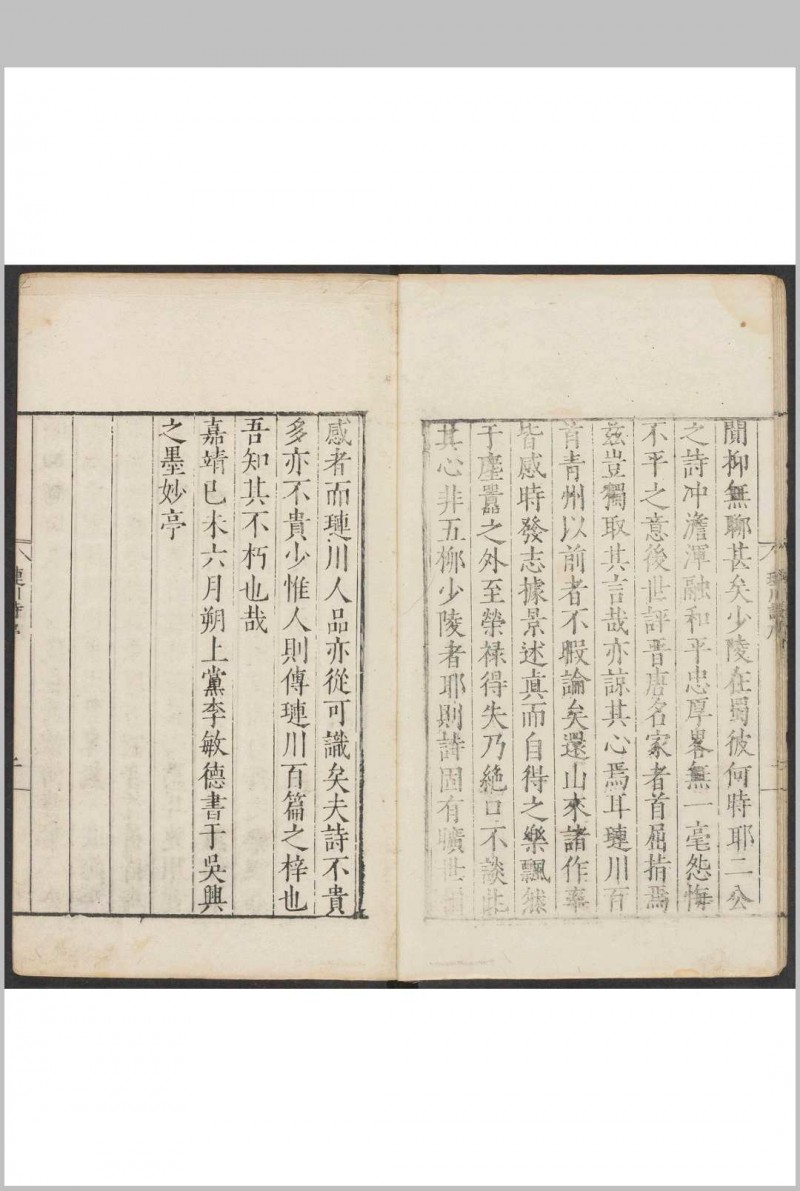 間抑無聊甚矣少陵在蜀彼何時耶二公
之詩冲澹渾融和平忠厚畧無一毫怨悔
不平之意後世評晋唐名家者首屈指焉
兹豈獨取其言哉亦諒其心焉耳璉川百
首青州以前者不暇論矣還山來諸作率
皆感時發志據景述真而自得之樂飄然
于塵囂之外至榮禄得失乃絶口不談此
其心非五柳少陵者耶則詩固有曠世
感者而璉川人品亦從可識矣夫詩不貴
多亦不貴少惟人則傳璉川百篇之梓也
吾知其不朽也哉
嘉靖已未六月朔上黨李敏德書于吳興
之墨妙亭
璉川詩序